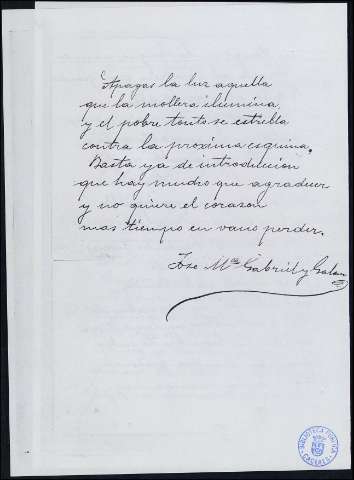 Apagas la luz aquella
que la mollera ilumina
y el pobre tonto se estrella
contra la proxima esquina.
Basta ya de introduccion
que hay mucho que agradecer
y no quiere el corazon
mas tiempo en vano perder.
Jose Mª Gabriel y Galan
BIBLIOTECA PUBLICA
CACERES